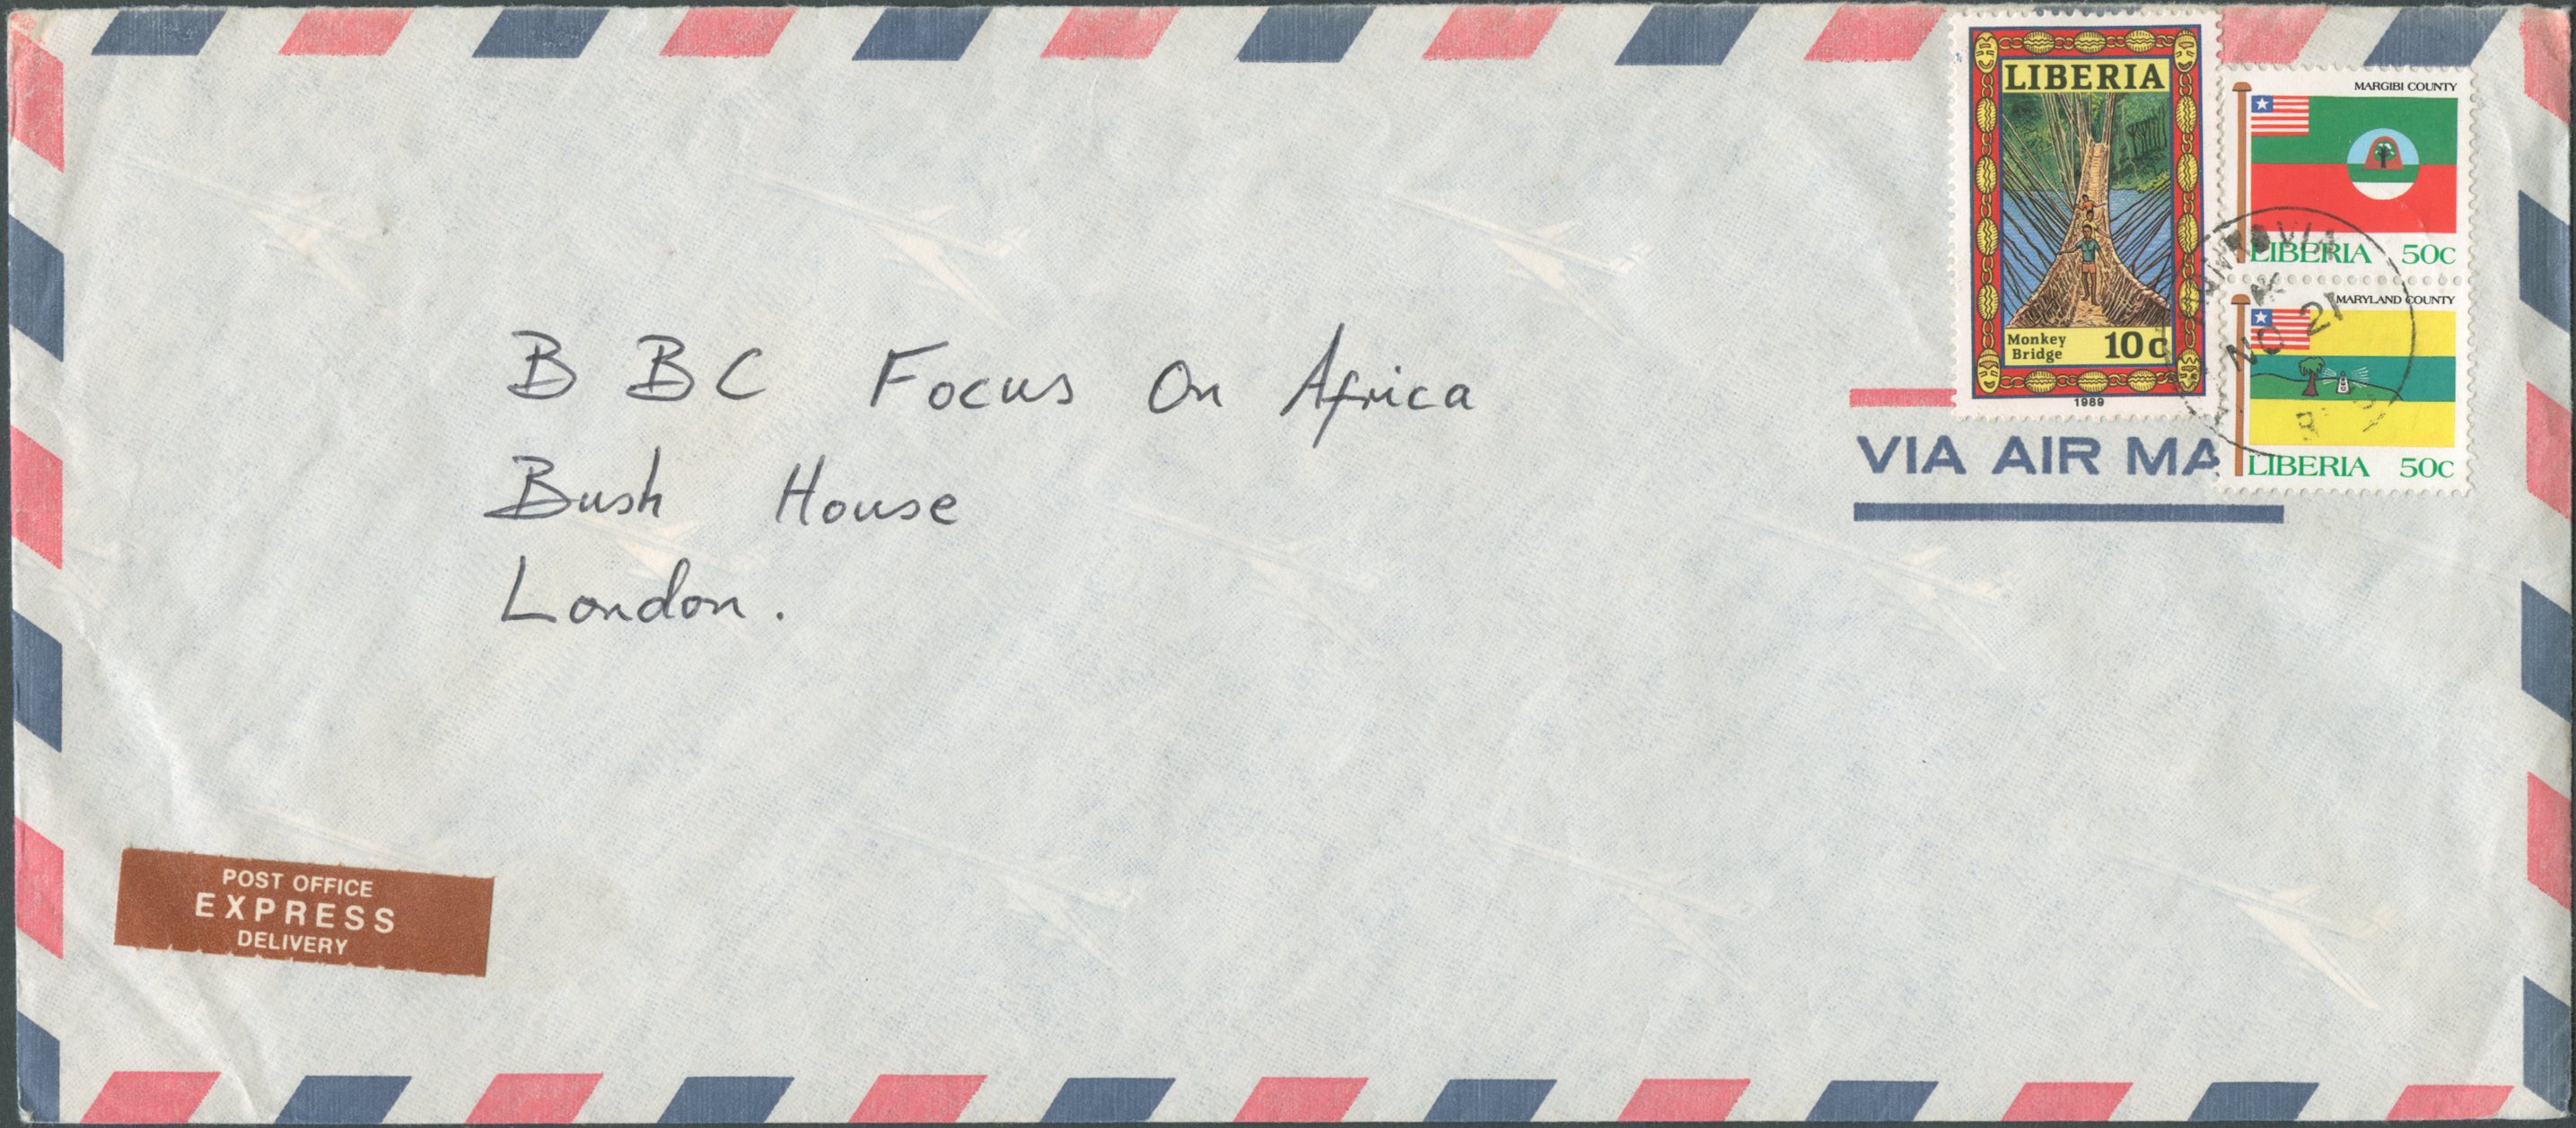 B B C Focus On Africa
Bush House
London.
LIBERIA
Monkey
Bridge
10c
1989
MARGIBI COUNTY
LIBERIA 50c
MARYLAND COUNTY
LIBERIA 50c
MONROVIA
NO 21
VIA AIR MA
POST OFFICE
EXPRESS
DELIVERY